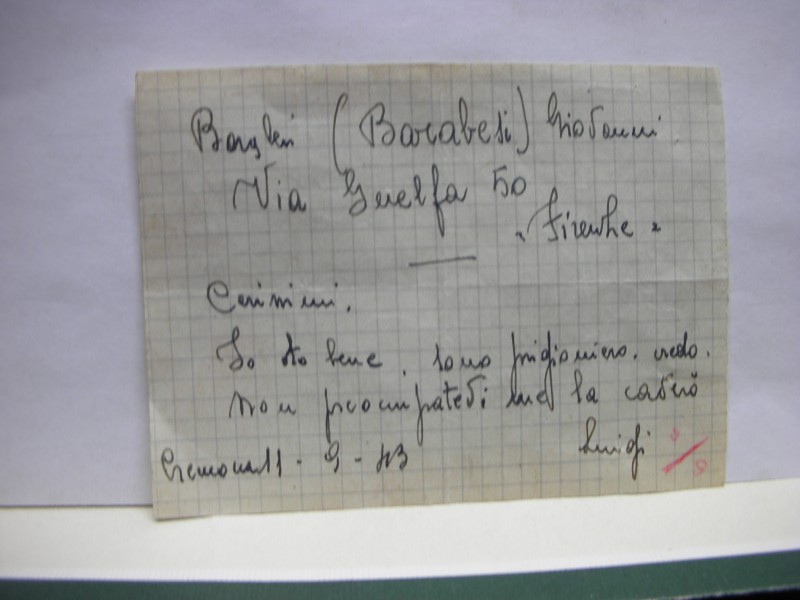 (Barabesi) Giovanni
Via Guelfa 50
" Firenze "
Carissimi.
Io sto bene. sono prigioniero. credo.
Non preoccupatevi me la caverò
Cremona 11 - 9 - 43 Luigi